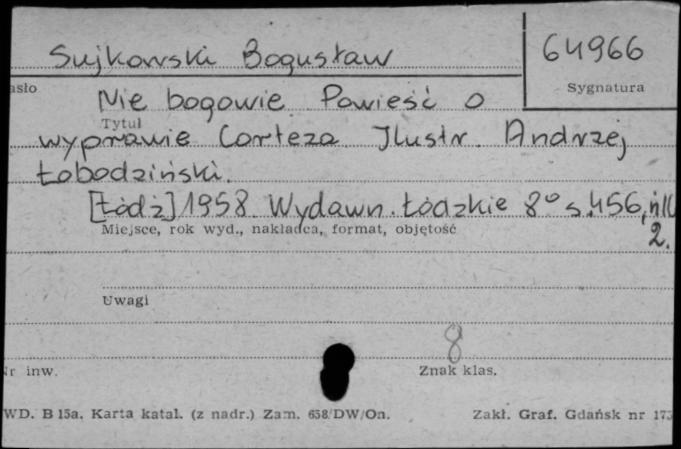 Sujkowski Bogusław
64966
asło
Sygnatura
Nie bogowie. Powieść o
Tytuł
wyprawie Corteza. Ilustr. Andrzej
Łobodziński.
[Łódź] 1958. Wydawn. Łódzkie 8° s. 456,
Miejsce, rok wyd., nakładca, format, objętość
2.
Uwagi
8
Nr inw.
Znak klas.
WD. B 15a. Karta katal. (z nadr.) Zam. 658/DW/On.
Zakł. Graf. Gdańsk nr 173